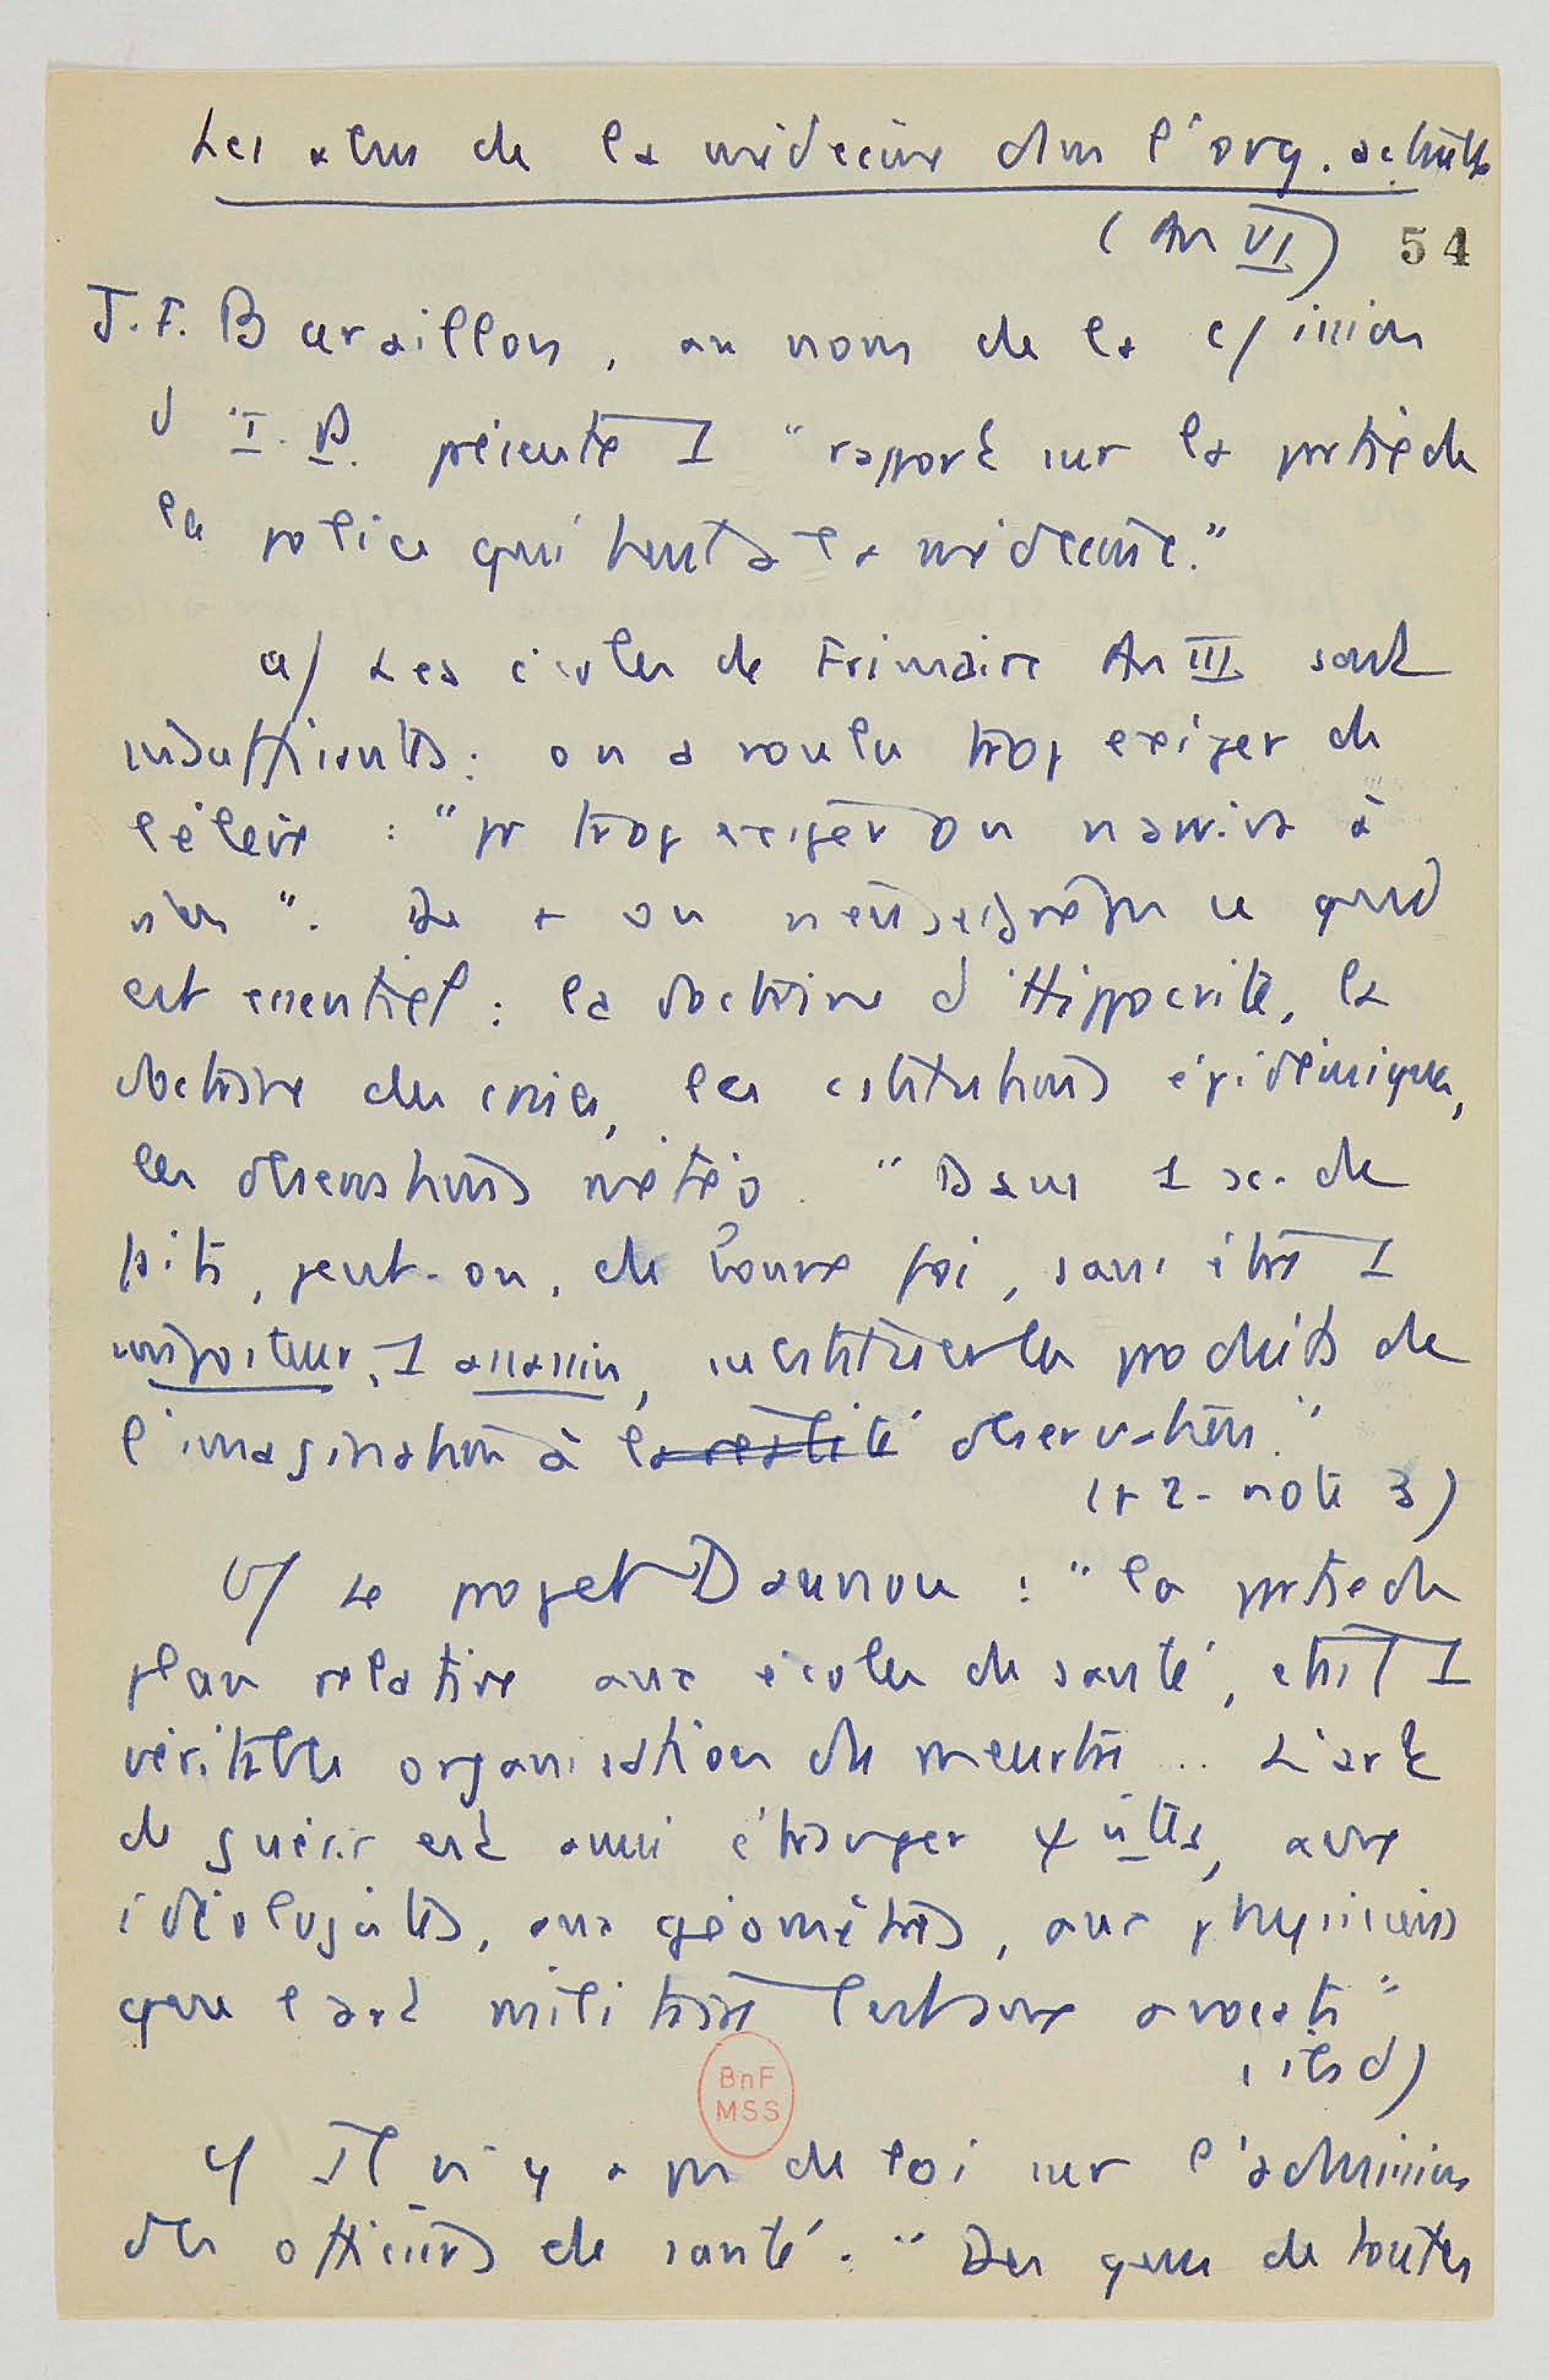 Les abus de la médecine dans l'org. actuelle
(An VI) 54
J. F. Baraillon, au nom de la c/ission
d'I. P. présente 1 "rapport sur la partie de
la police qui tient à la médecine."
a/ Les écoles de Frimaire An III sont
insuffisants : on a voulu trop exiger de
l'élève : "pr trop exiger on n'arriva à
rien". De + on n'enseigne pas ce qui
est essentiel : la doctrine d'Hippocrate, la
doctrine des crises, les cstitutions épidémiques,
les observations météo. "Dans 1 sc. de
faits, peut-on, de bonne foi, sans être 1
imposteur, 1 assassin, substituer les produits de
l'imagination à la réalité observation."
(p 2 - note 3)
b/ Le projet Daunou : "la partie du
plan relative aux écoles de santé, était 1
véritable organisation du meurtre .. L'art
de guérir est aussi étranger aux
idéologistes, aux géomètres, aux physiciens
que l'art militaire l'est aux avocats"
(ibid)
c/ Il n'y a pas de loi sur l'admission
des officiers de santé. "Des gens de toutes
BnF
MSS